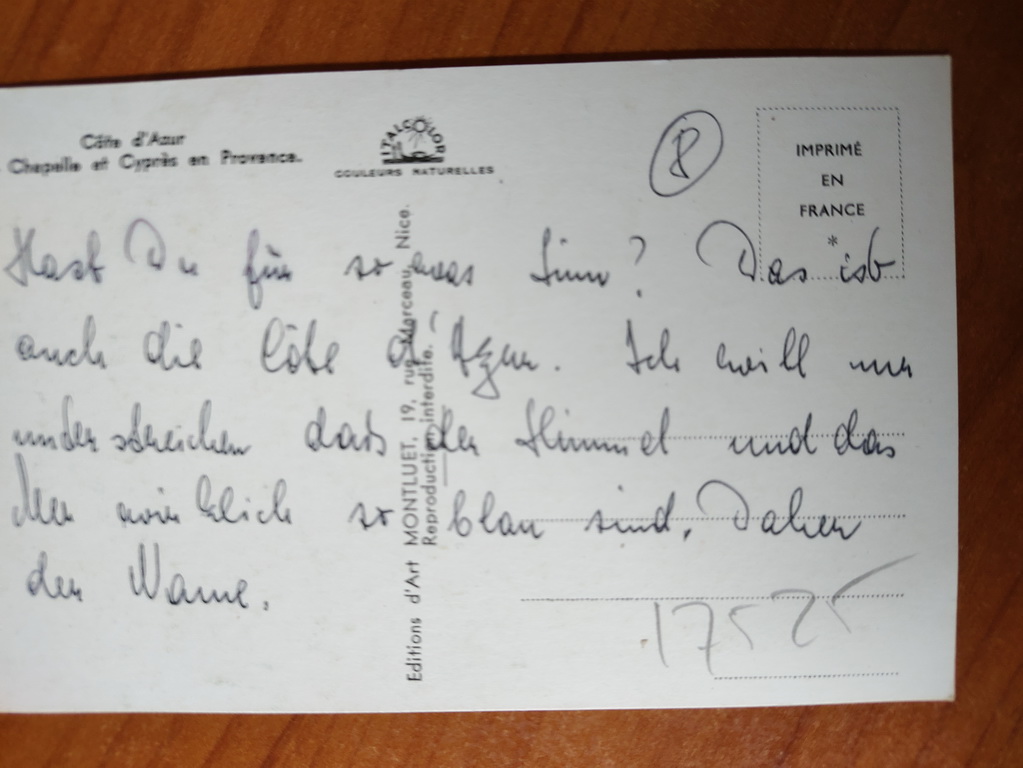 Côte d'Azur
Chapelle et Cyprès en Provence.
ITALCOLOR
COULEURS NATURELLES
8
IMPRIMÉ
EN
FRANCE
*
Hast Du für so was Sinn? Das ist
auch die Côte d'Azur. Ich will nur
unterstreichen daß der Himmel und das
Meer wirklich so blau sind. Daher
der Name.
Editions d'Art MONTLUET, 19, rue Marceau, Nice.
Reproduction interdite.
17525